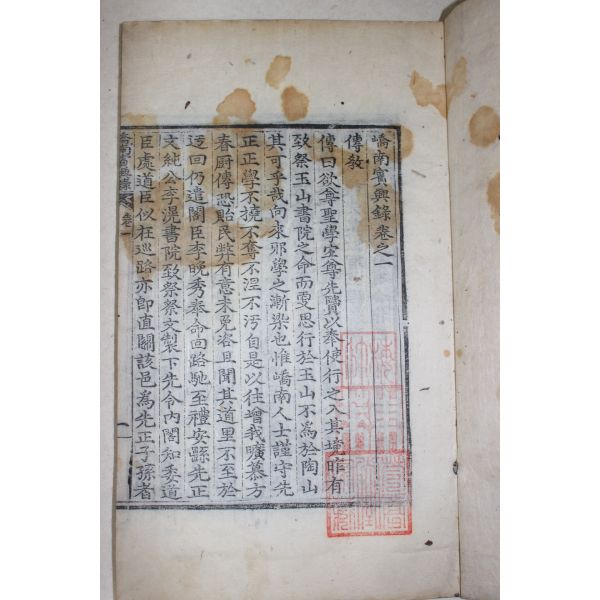 嶠南賓興錄卷之一
傳敎
傳曰欲尊聖學宜尊先賢以奉使行之入其境昨有
致祭玉山書院之命而更思行於玉山不爲於陶山
其可乎哉向來邪學之漸染也惟嶠南人士謹守先
正正學不撓不奪不涅不汚自是以往增我曠慕方
春廚傳恐貽民弊有意未免咨且聞其道里不至於
迂回仍遣閣臣李晚秀奉命回路馳至禮安縣先正
文純公李滉書院致祭祭文製下先令內閣知委道
臣處道臣似枉巡路亦卽直關該邑爲先正子孫者
嶠南賓興錄 卷一 一